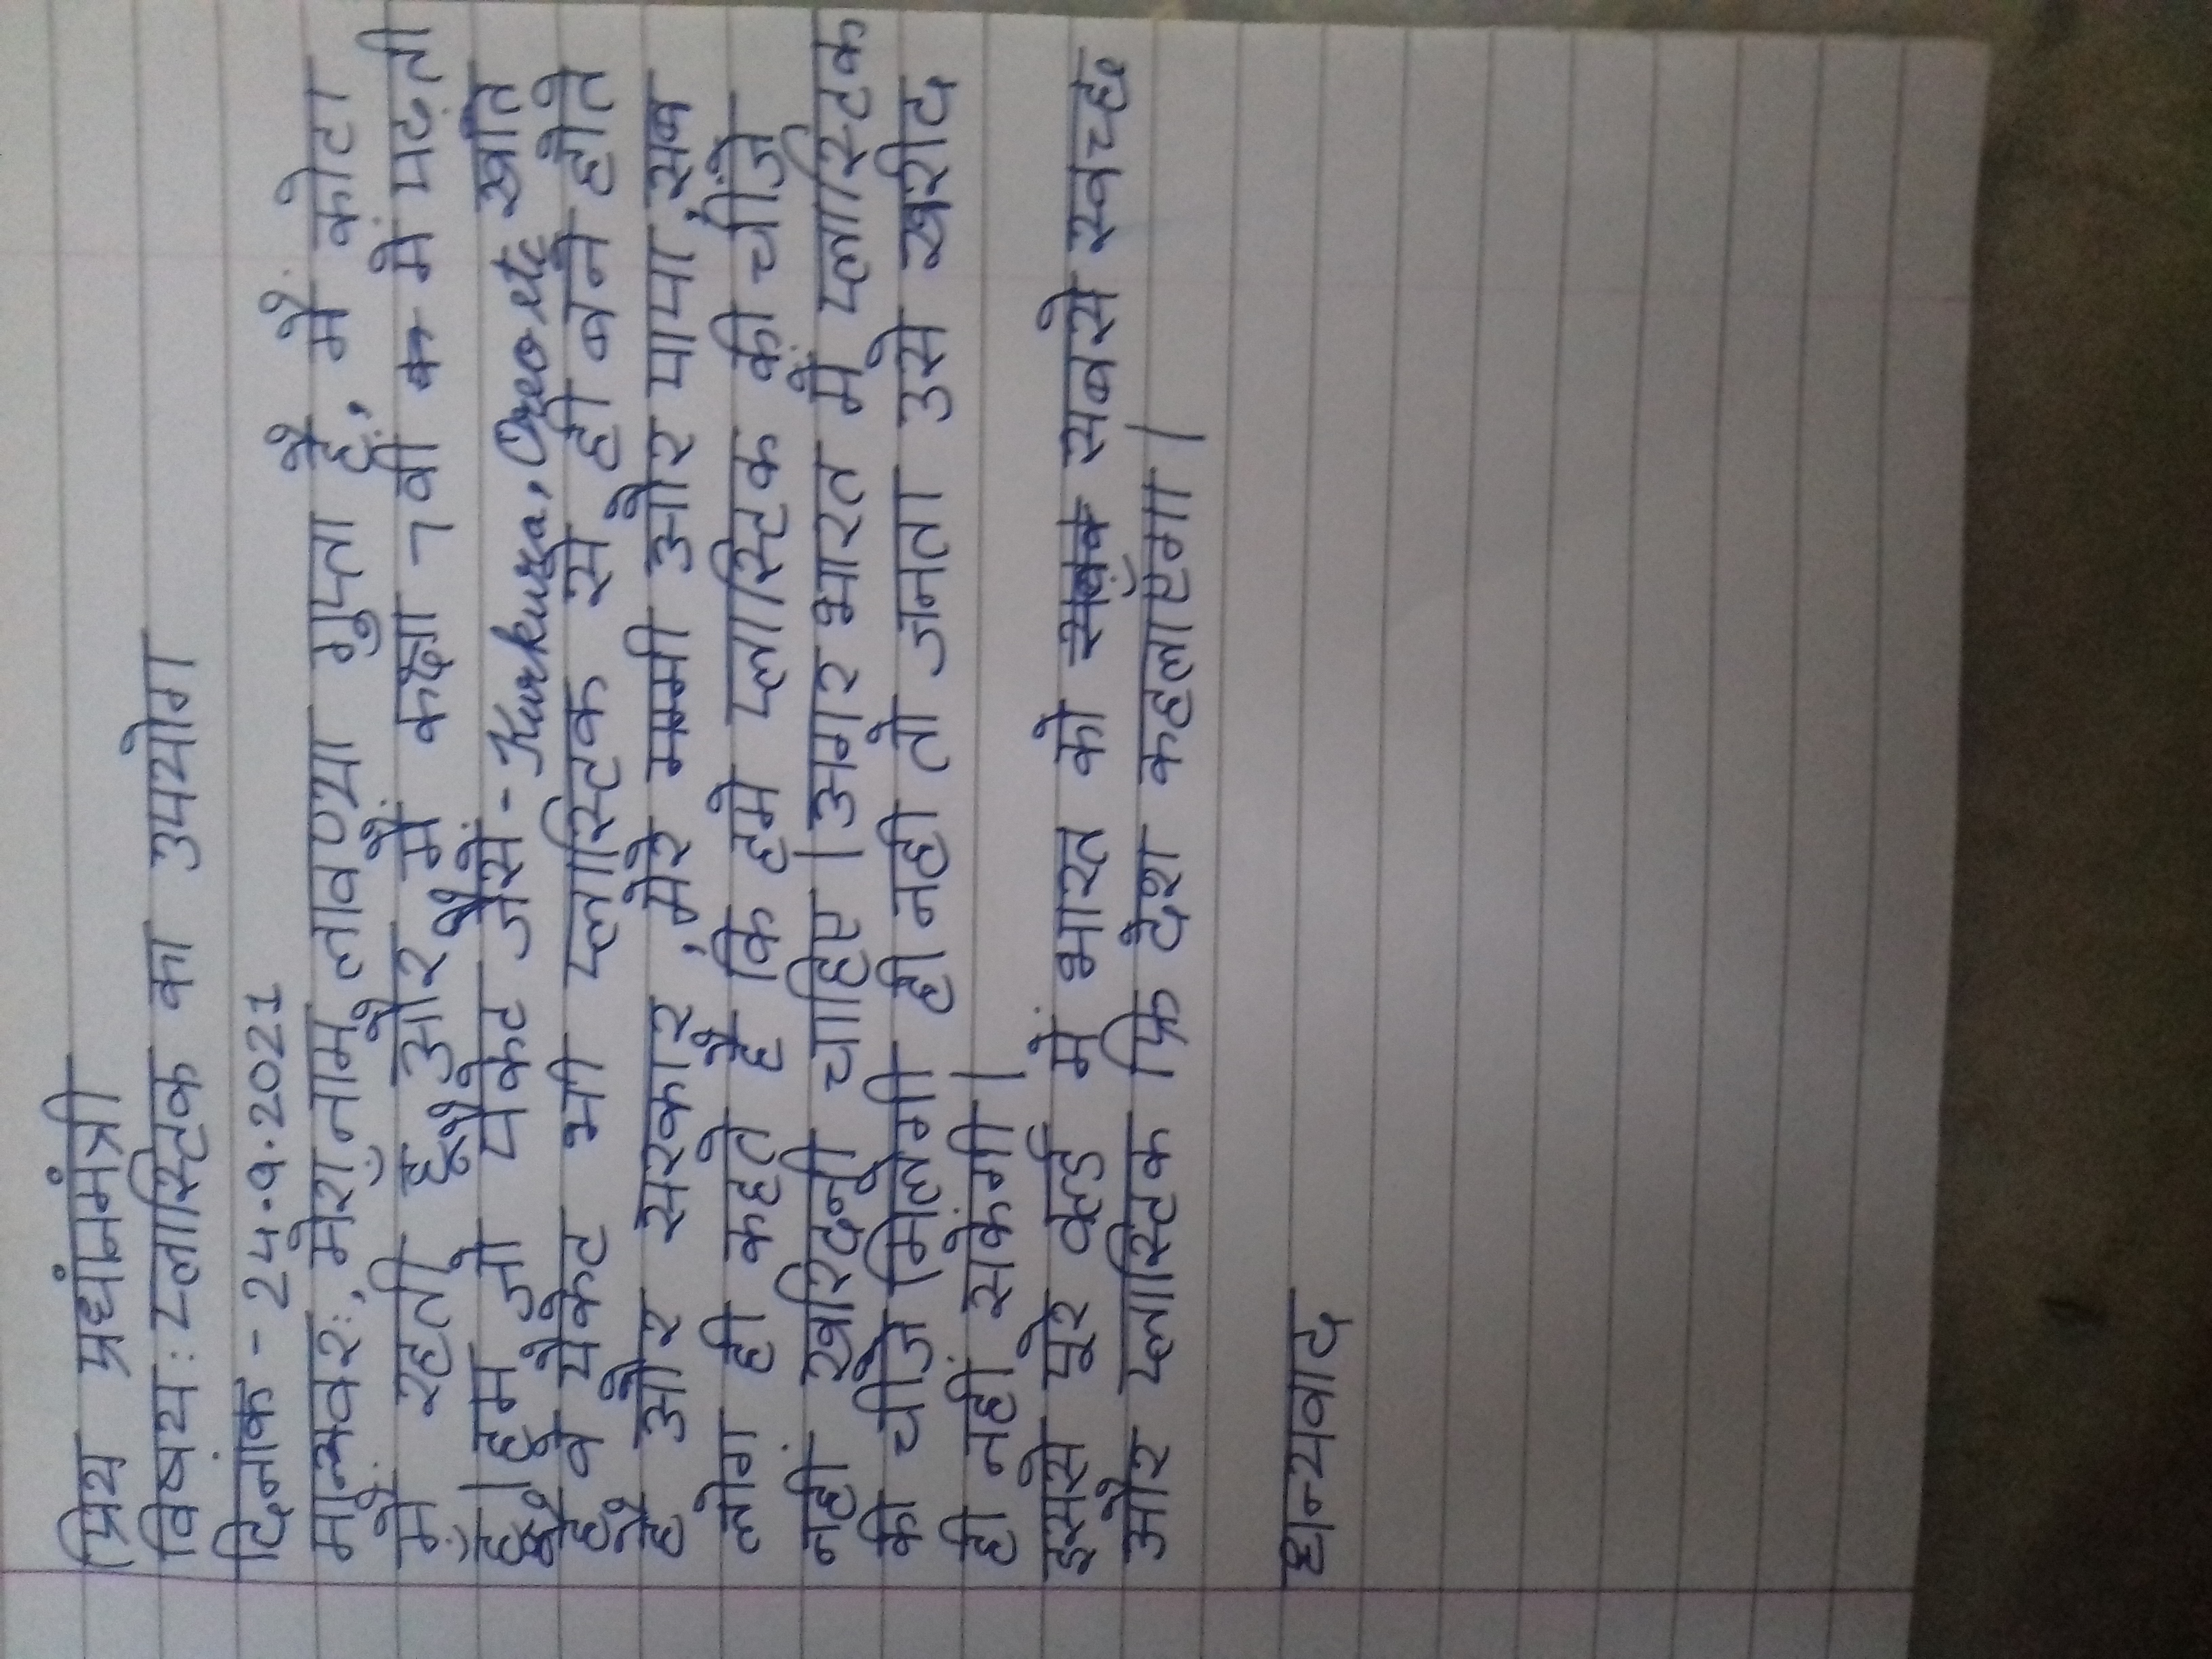 प्रिय प्रधांनमंत्री
विषय: प्लास्टिक का उपयोग
दिनांक - 24.9.2021
मान्यवर:, मेरा नाम लावण्या गुप्ता है, मैं कोटा
में रहती हूँ और मैं कक्षा 7वी में पढ़ती
हूँ। हम जो पैकेट जैसे - Kurkure, Oreo etc खाते
है वे पैकेट भी प्लास्टिक से ही बने होते
है और सरकार, मेरे मम्मी और पापा, सब
लोग ही कहते है कि हमे प्लास्टिक की चीज़े
नहीं खरिदनी चाहिए। अगर भारत में प्लास्टिक
की चीज़े मिलेगी ही नही तो जनता उसे खरीद
ही नहीं सकेगी।
इससे पूरे वर्ल्ड में भारत को सबसे स्वच्छ
और प्लास्टिक फ्रि देश कहलाएगा।
धन्यवाद